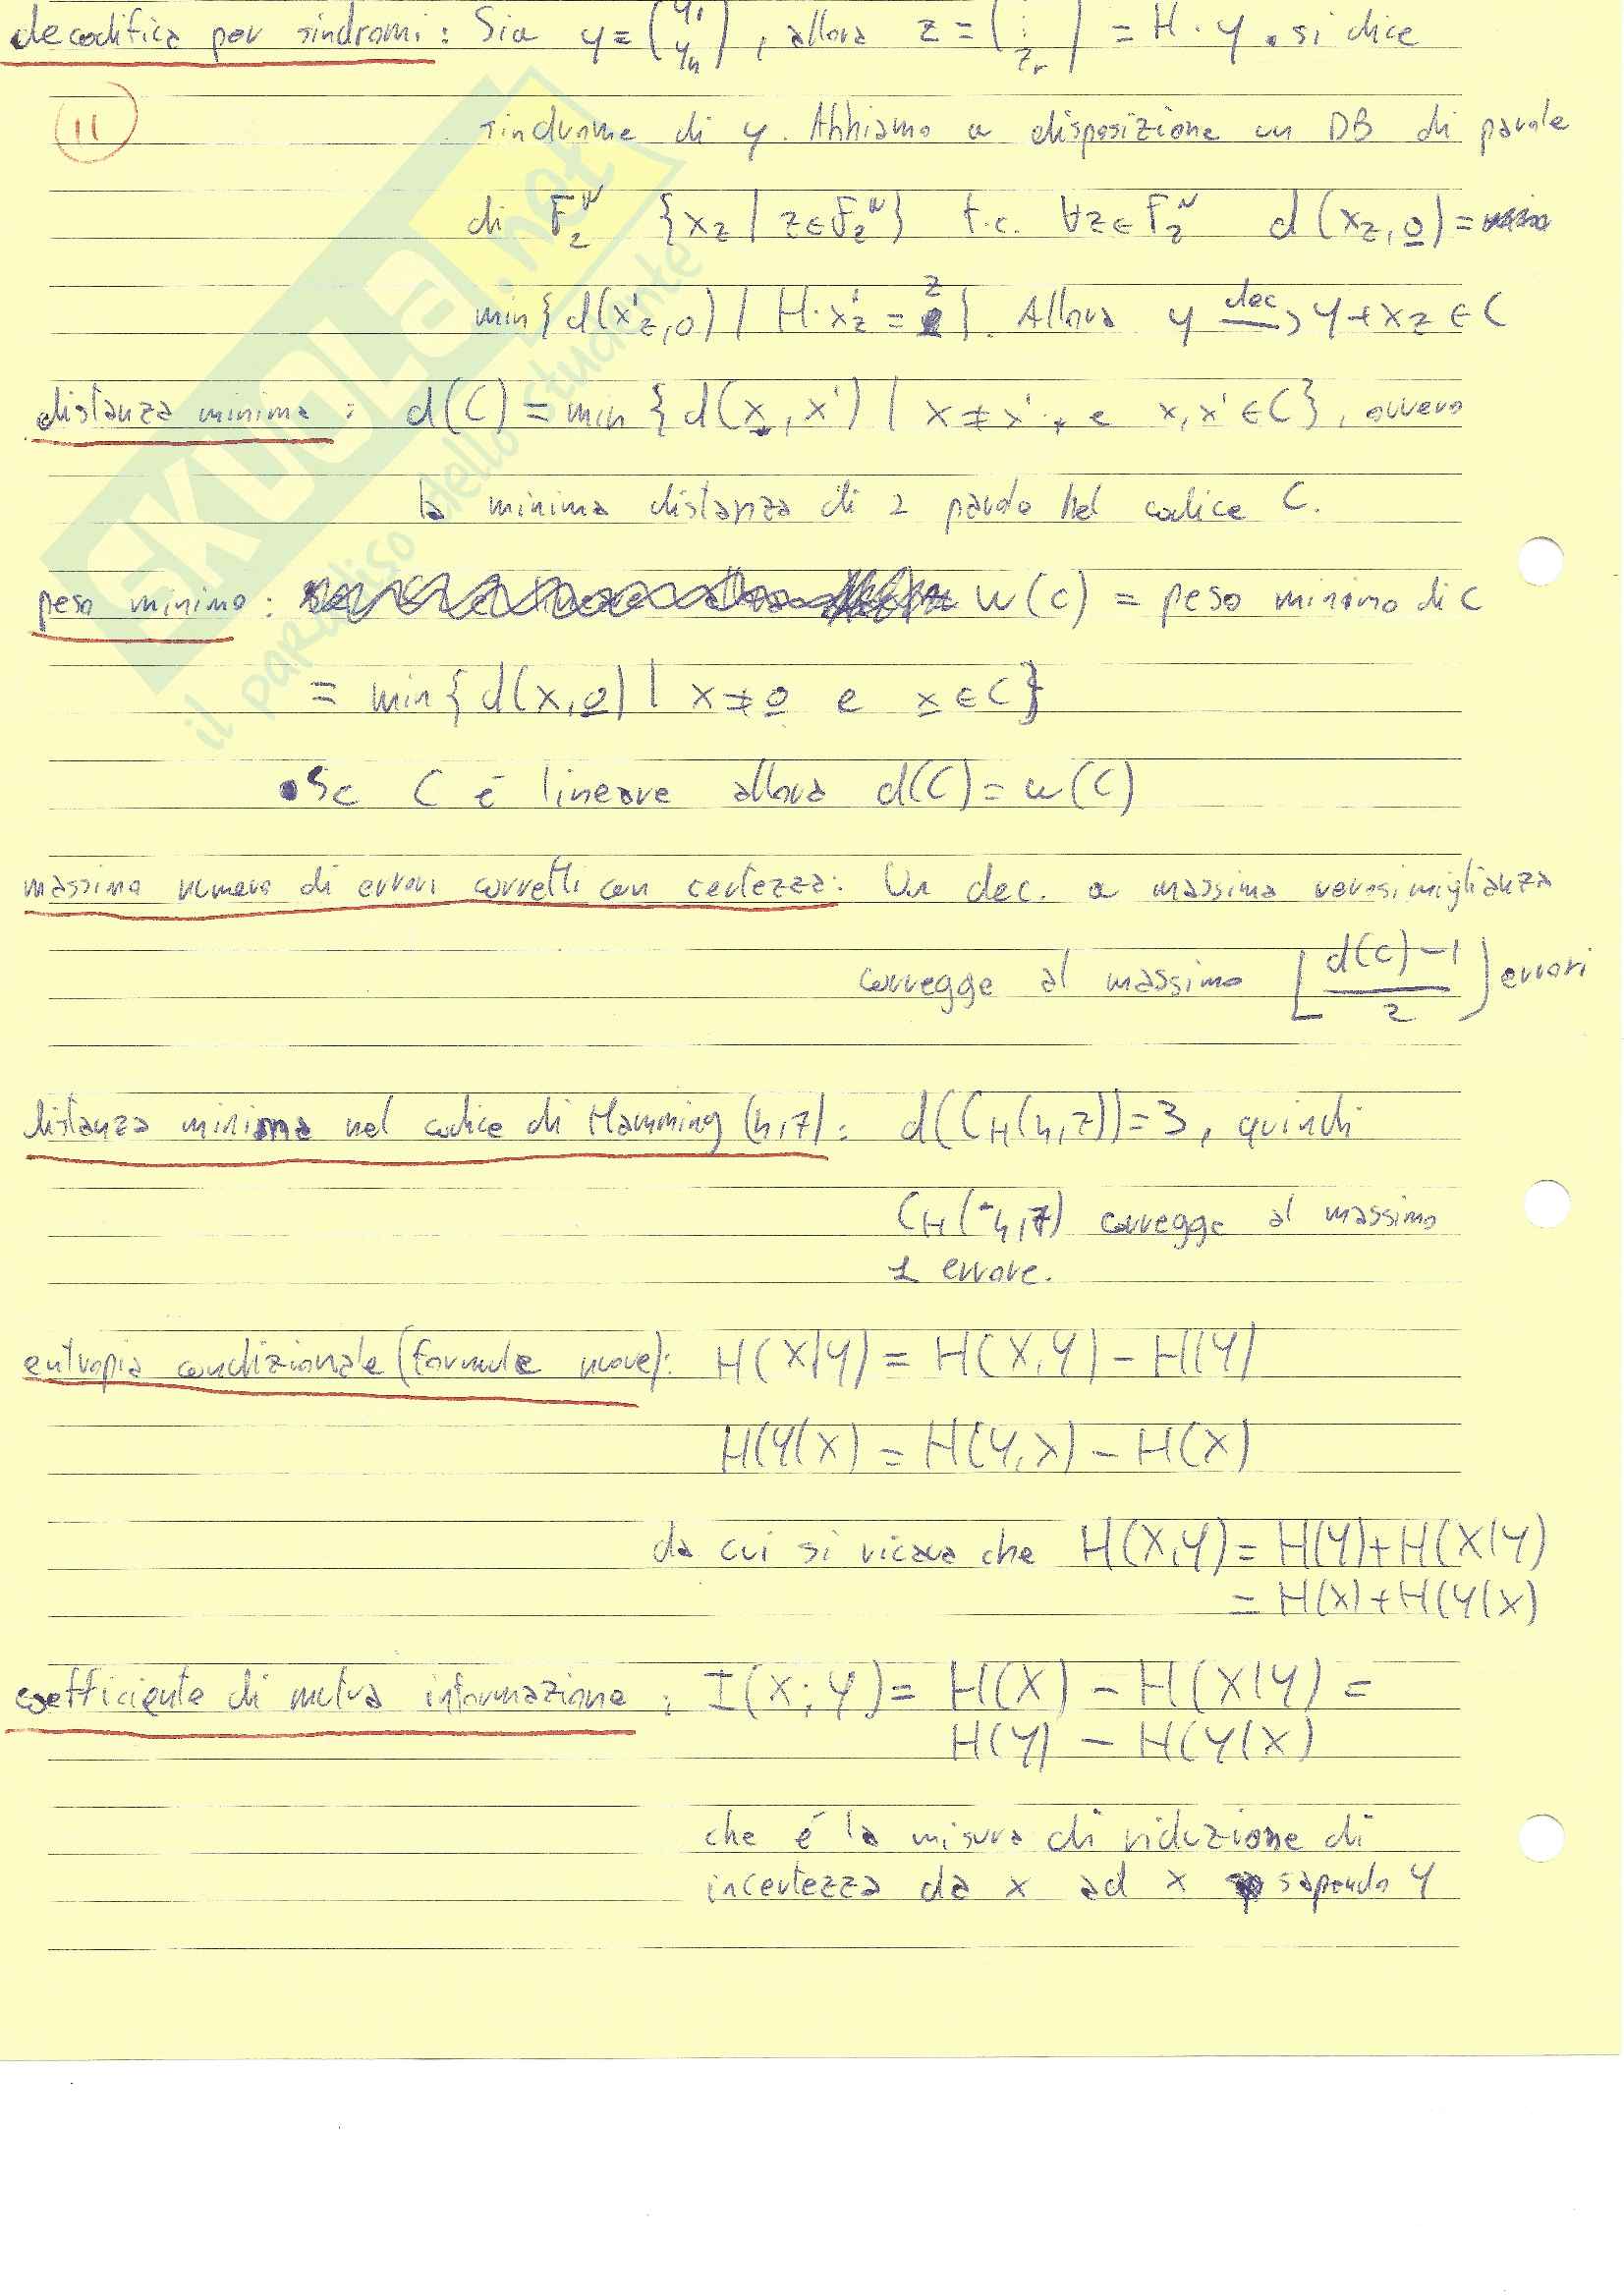 decodifica per sindromi: Sia y = (y1 yn), allora z = (⋮ zr) = H · y. si dice
11
sindrome di y. Abbiamo a disposizione un DB di parole
di F₂ᴺ {xz | z ∈ F₂ᴺ} t.c. ∀z ∈ F₂ᴺ d(xz, 0) =
min{d(x'z, 0) | H·x'z = z}. Allora y dec→ y + xz ∈ C
distanza minima: d(C) = min {d(x, x') | x ≠ x', e x, x' ∈ C}, ovvero
la minima distanza di 2 parole nel codice C.
peso minimo: w(C) = peso minimo di C
= min{d(x, 0) | x ≠ 0 e x ∈ C}
• Se C é lineare allora d(C) = w(C)
massimo numero di errori corretti con certezza: Un dec. a massima verosimiglianza
corregge al massimo ⌊(d(C) − 1)/2⌋ errori
distanza minima nel codice di Hamming (4,7): d(CH(4,7)) = 3, quindi
CH(4,7) corregge al massimo
1 errore.
entropia condizionale (formule nuove): H(X|Y) = H(X,Y) − H(Y)
H(Y|X) = H(Y,X) − H(X)
da cui si ricava che H(X,Y) = H(Y) + H(X|Y)
= H(X) + H(Y|X)
coefficiente di mutua informazione: I(X;Y) = H(X) − H(X|Y) =
H(Y) − H(Y|X)
che é la misura di riduzione di
incertezza da x ad x sapendo y
SKUOLA.net
il paradiso dello studente